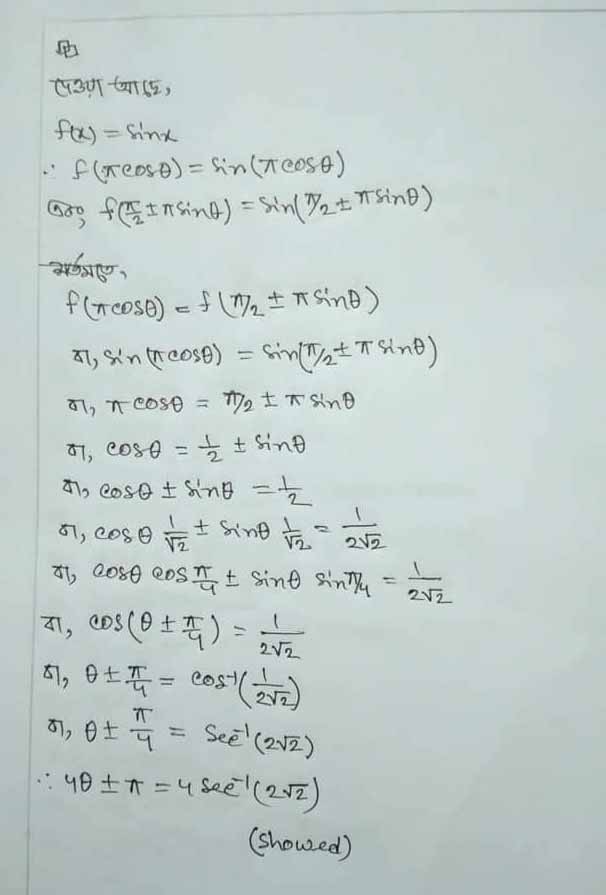 দেওয়া আছে,
f(x) = sinx
∴ f(πcosθ) = sin(πcosθ)
এবং, f(π/2 ± πsinθ) = sin(π/2 ± πsinθ)
শর্তমতে,
f(πcosθ) = f(π/2 ± πsinθ)
বা, sin(πcosθ) = sin(π/2 ± πsinθ)
বা, πcosθ = π/2 ± πsinθ
বা, cosθ = 1/2 ± sinθ
বা, cosθ ± sinθ = 1/2
বা, cosθ 1/√2 ± sinθ 1/√2 = 1/2√2
বা, cosθ cosπ/4 ± sinθ sinπ/4 = 1/2√2
বা, cos(θ ± π/4) = 1/2√2
বা, θ ± π/4 = cos⁻¹(1/2√2)
বা, θ ± π/4 = Sec⁻¹(2√2)
∴ 4θ ± π = 4 sec⁻¹(2√2)
(Showed)